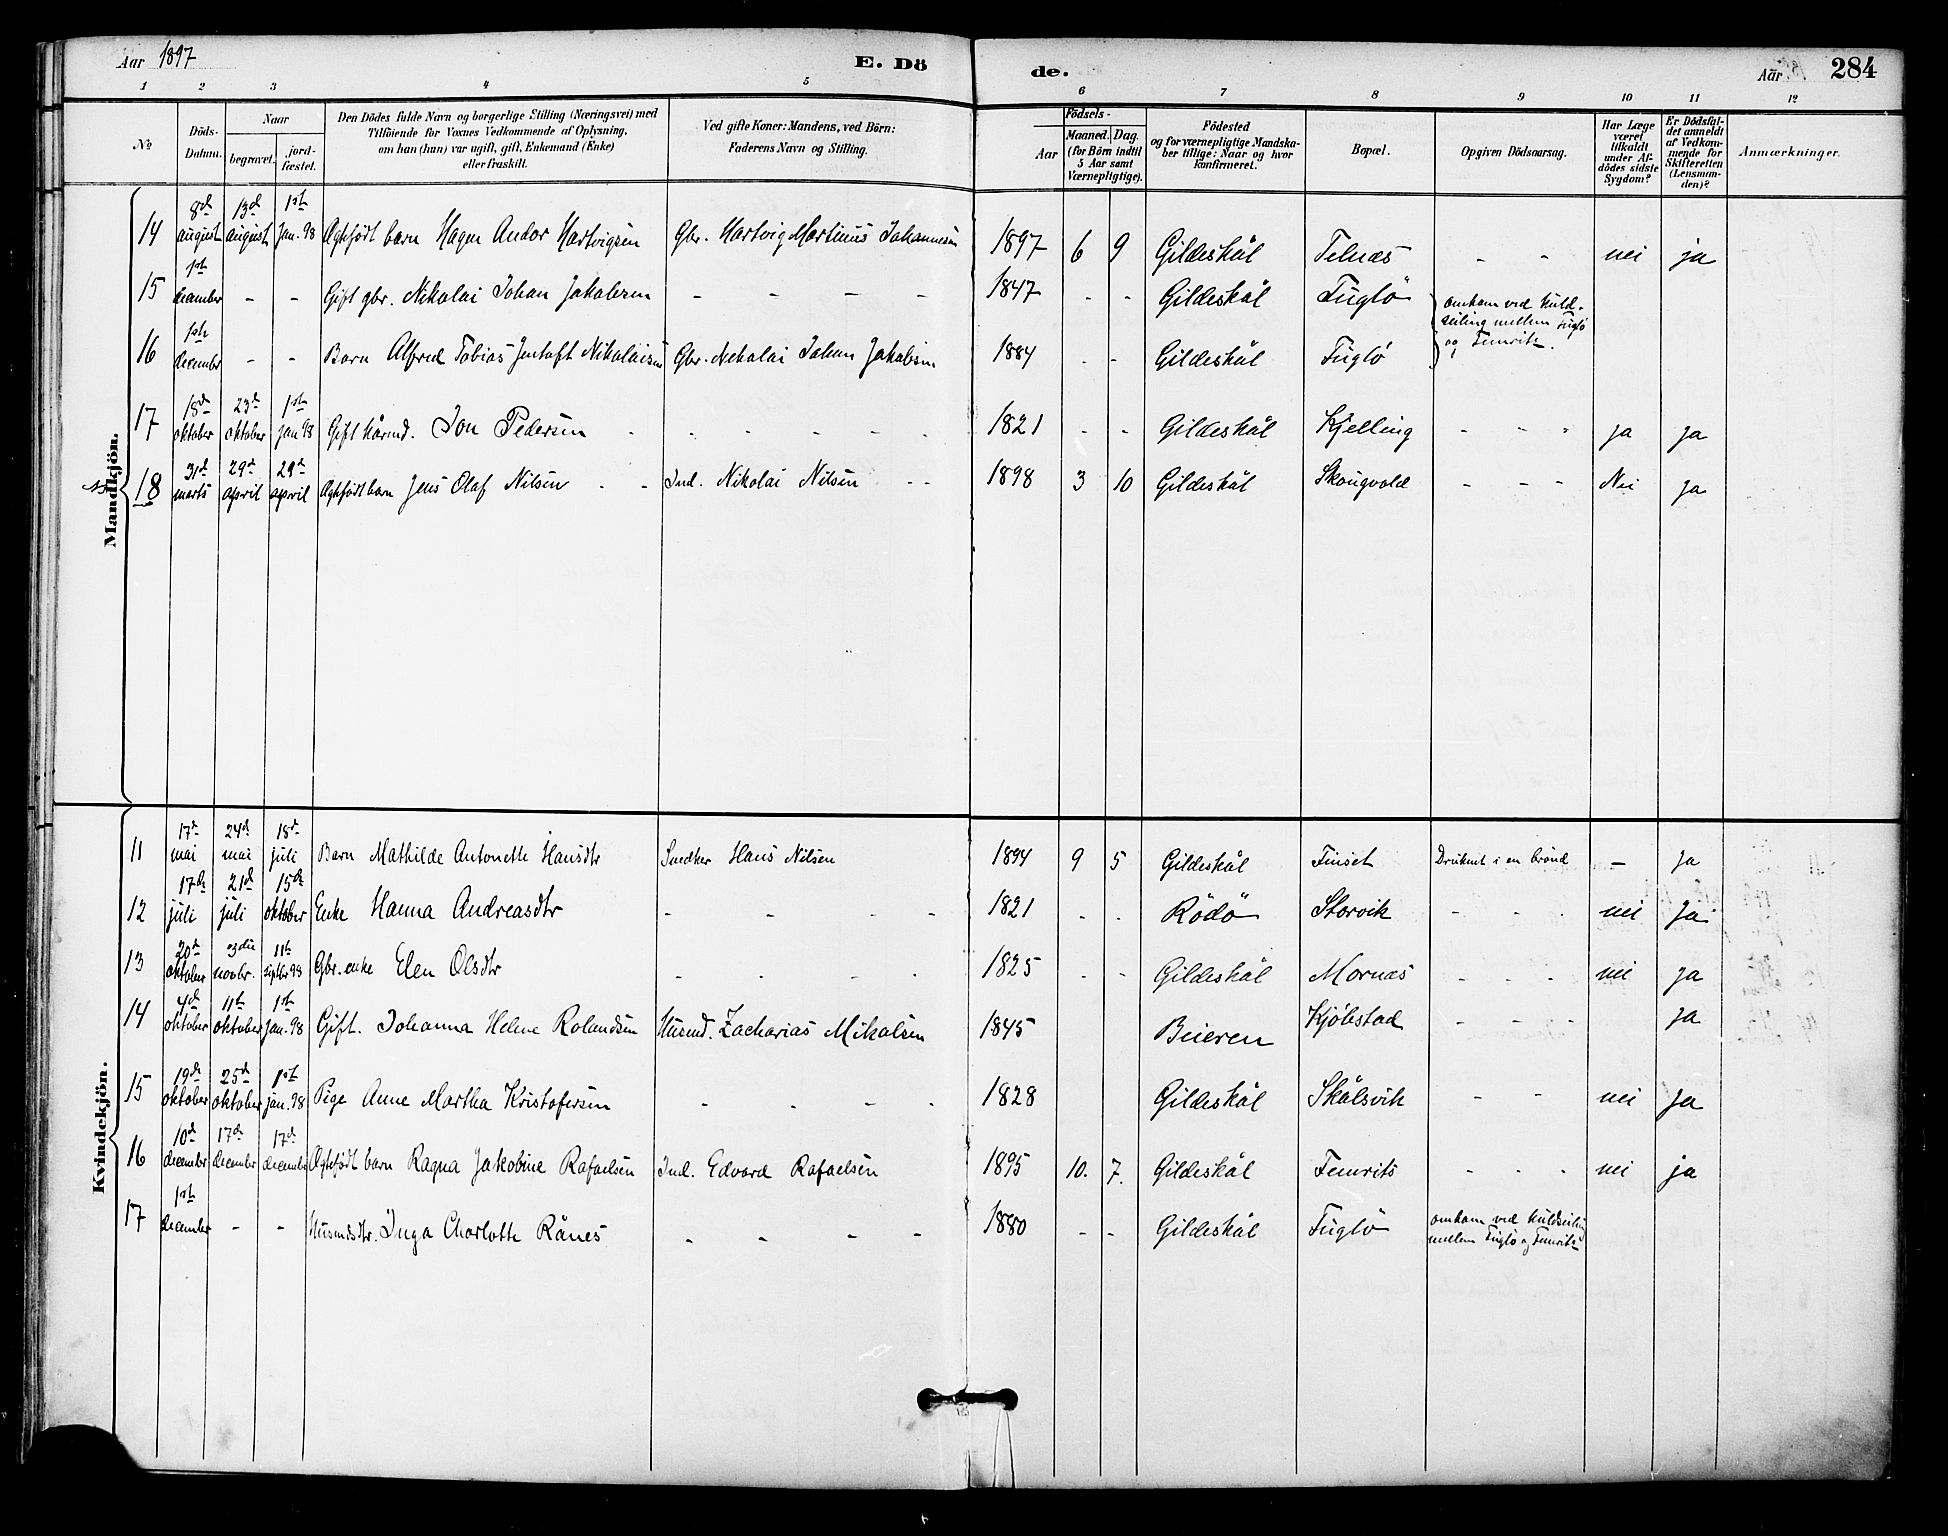 Aar 1897
E. Dö
de.
Aar
284
1 2 3 4 5 6 7 8 9 10 11 12
No
Döds-Datum.
Naar
begravet.
jord-fæstet.
Den Dödes fulde Navn og borgerlige Stilling (Næringsvei) med
Tilföiende for Voxnes Vedkommende af Oplysning,
om han (hun) var ugift, gift, Enkemand (Enke)
eller fraskilt.
Ved gifte Koner: Mandens, ved Börn:
Faderens Navn og Stilling.
Födsels-
Aar
Maaned. Dag.
(for Börn indtil
5 Aar samt
Værnepligtige).
Födested
og for værnepligtige Mandska-
ber tillige: Naar og hvor
konfirmeret.
Bopæl.
Opgiven Dödsaarsag.
Har Læge
været
tilkaldt
under Af-
dödes sidste
Sygdom?
Er Dödsfal-
det anmeldt
af Vedkom-
mende for
Skifteretten
(Lensman-
den)?
Anmærkninger.
Mandkjön.
14 8de august 13de august 1ste Jan. 98 Ægtefödt barn Hagen Andor Hartvigsen Gbr. Hartvig Martinus Johannesen 1897 6 9 Gildeskål Telnæs - - nei ja
15 1ste december - - Gift gbr. Nikolai Johan Jakobsen - - - - 1847 - - Gildeskål Fuglö omkom ved kuld-
seiling mellem Fuglö
og Femris.
16 1ste december - - Barn Alfred Tobias Jentoft Nikolaisen Gbr. Nikolai Johan Jakobsen 1884 - - Gildeskål Fuglö
17 18de oktober 23de oktober 1ste jan 98 Gift kårmd. Jon Pedersen - - - - - 1821 - - Gildeskål Kjelling - - - ja ja
18 31de marts 29de april 29de april Ægtefödt barn Jens Olaf Nilsen - - Ind. Nikolai Nilsen - - 1898 3 10 Gildeskål Skougvold - - - Nei ja
Kvindekjön.
11 17de mai 24de mai 18de juli Barn Mathilde Antonette Hansdtr Snedker Hans Nilsen 1894 9 5 Gildeskål Finset Druknet i en brönd - ja
12 17de juli 21de juli 15de oktober Enke Hanna Andreasdtr - - - - 1821 - - Rödö Storvik - - - nei ja
13 20de oktober 3die novbr. 11te septbr 98 Gbr. enke Elen Olsdtr - - - - 1825 - - Gildeskål Mornæs - - - nei ja
14 4de oktober 11te oktober 1ste jan. 98 Gift. Johanna Helene Rolandsen Husmd. Zacharias Mikalsen 1845 Beieren Kjöbstad - - - ja
15 19de oktober 25de oktober 1ste jan. 98 Pige Anne Martha Kristofersen - - - - 1828 Gildeskål Skålsvik - - nei ja
16 10de december 17de december 17de december Ægtefödt barn Ragna Jakobine Rafaelsen Ind. Edvard Rafaelsen 1895 10. 7. Gildeskål Femris - - - nei ja
17 1ste december - - Husmdsdtr. Inga Charlotte Rånes - - - - 1880 - - Gildeskål Fuglö omkom ved kuldseiling
mellem Fuglö og Femris